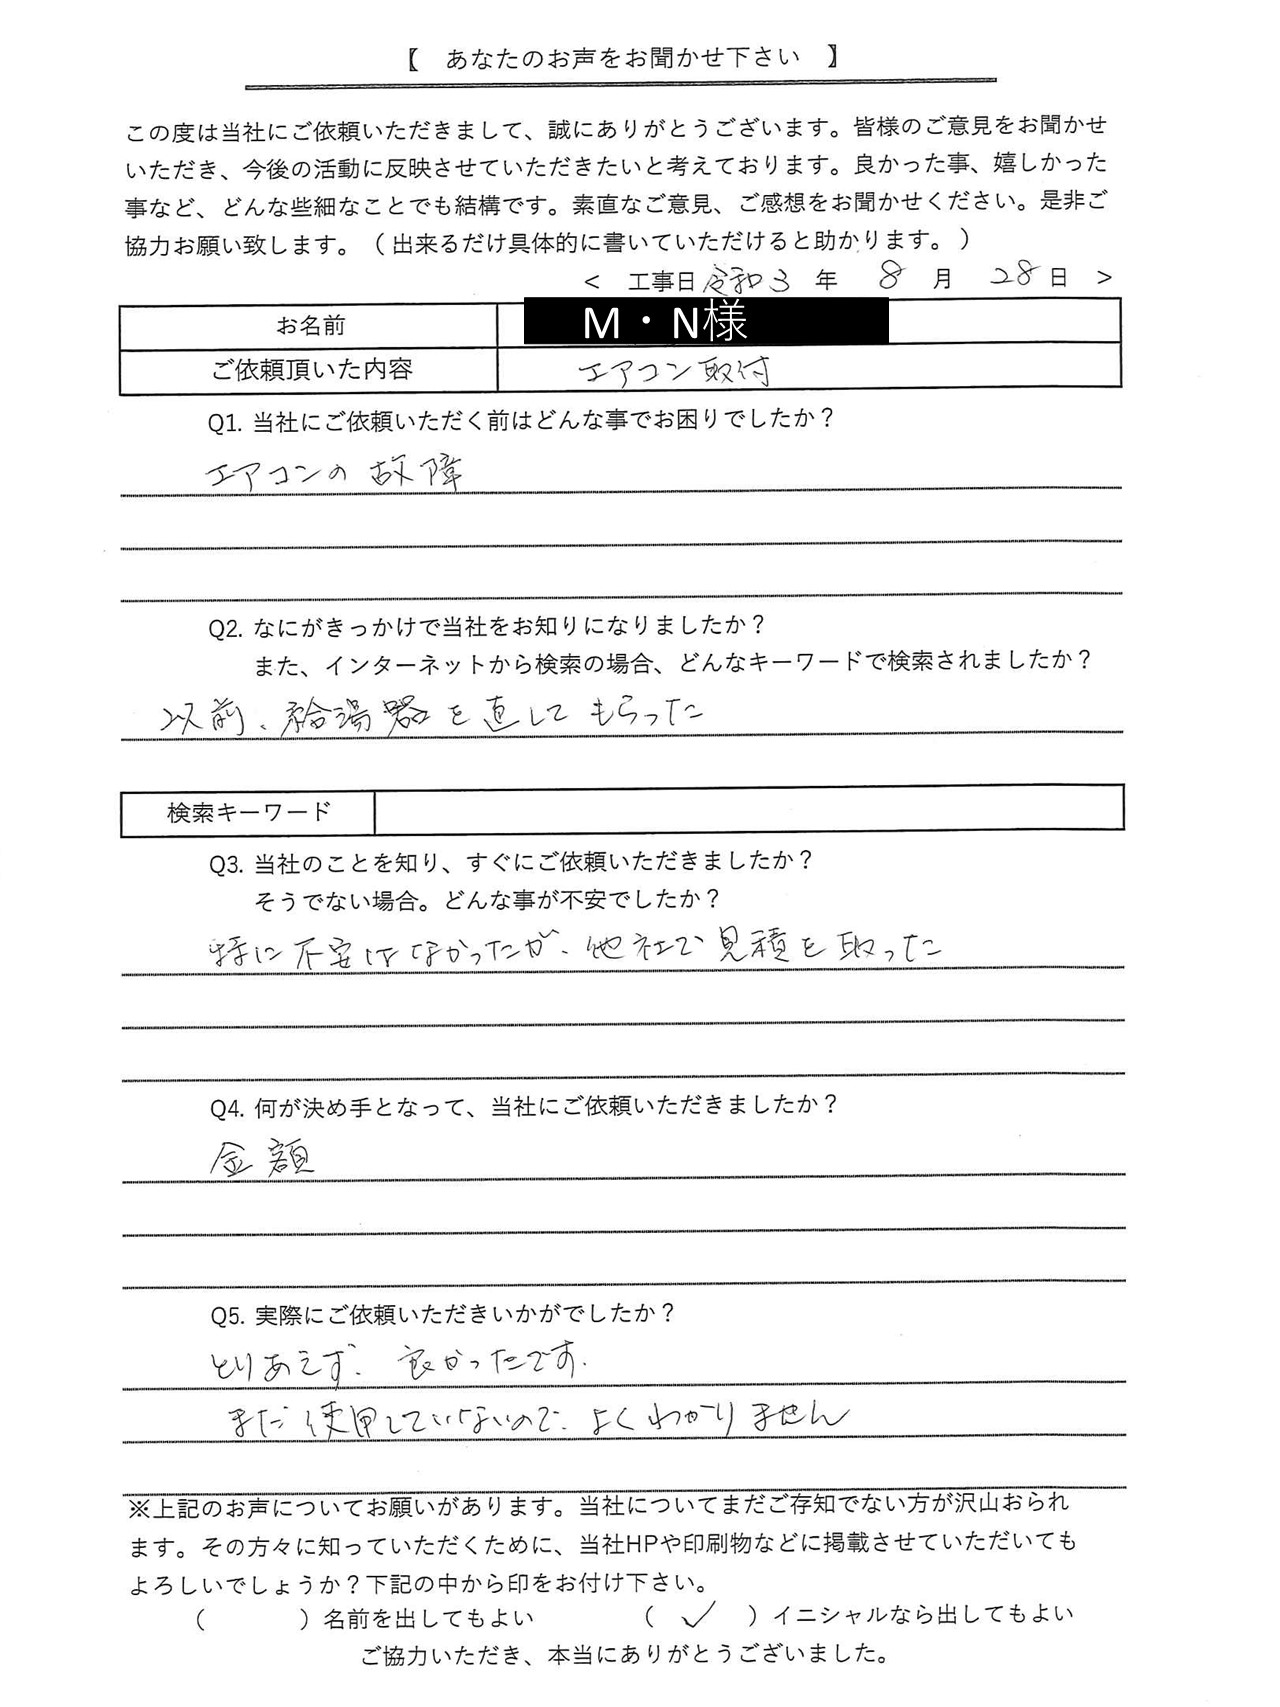 【 あなたのお声をお聞かせ下さい 】
この度は当社にご依頼いただきまして、誠にありがとうございます。皆様のご意見をお聞かせ
いただき、今後の活動に反映させていただきたいと考えております。良かった事、嬉しかった
事など、どんな些細なことでも結構です。素直なご意見、ご感想をお聞かせください。是非ご
協力お願い致します。（出来るだけ具体的に書いていただけると助かります。）
< 工事日 令和3 年 8 月 28 日 >
お名前 M・N様
ご依頼頂いた内容 エアコン取付
Q1. 当社にご依頼いただく前はどんな事でお困りでしたか？
エアコンの故障
Q2. なにがきっかけで当社をお知りになりましたか？
また、インターネットから検索の場合、どんなキーワードで検索されましたか？
以前、給湯器を直してもらった
検索キーワード
Q3. 当社のことを知り、すぐにご依頼いただきましたか？
そうでない場合。どんな事が不安でしたか？
特に不安はなかったが、他社で見積を取った
Q4. 何が決め手となって、当社にご依頼いただきましたか？
金額
Q5. 実際にご依頼いただきいかがでしたか？
とりあえず、良かったです.
まだ使用していないので、よくわかりません
※上記のお声についてお願いがあります。当社についてまだご存知でない方が沢山おられ
ます。その方々に知っていただくために、当社HPや印刷物などに掲載させていただいても
よろしいでしょうか？下記の中から印をお付け下さい。
（　　　）名前を出してもよい　（ ✓ ）イニシャルなら出してもよい
ご協力いただき、本当にありがとうございました。